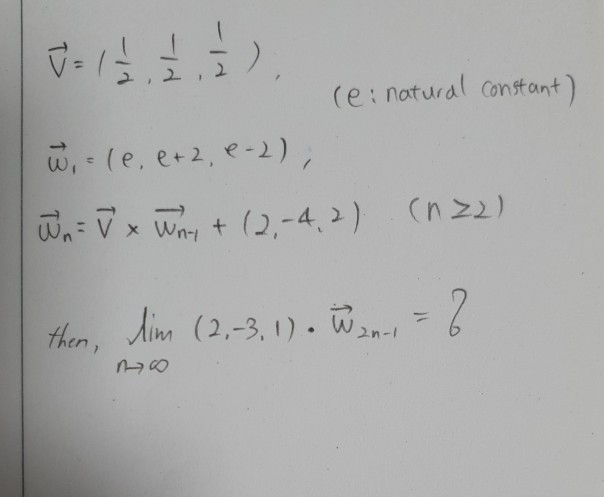 V⃗ = (1/2, 1/2, 1/2),
(e : natural constant)
w⃗₁ = (e, e+2, e-2),
w⃗ₙ = V⃗ × w⃗ₙ₋₁ + (2, -4, 2) (n ≥ 2)
then, lim (2, -3, 1) · w⃗₂ₙ₋₁ = ?
n→∞